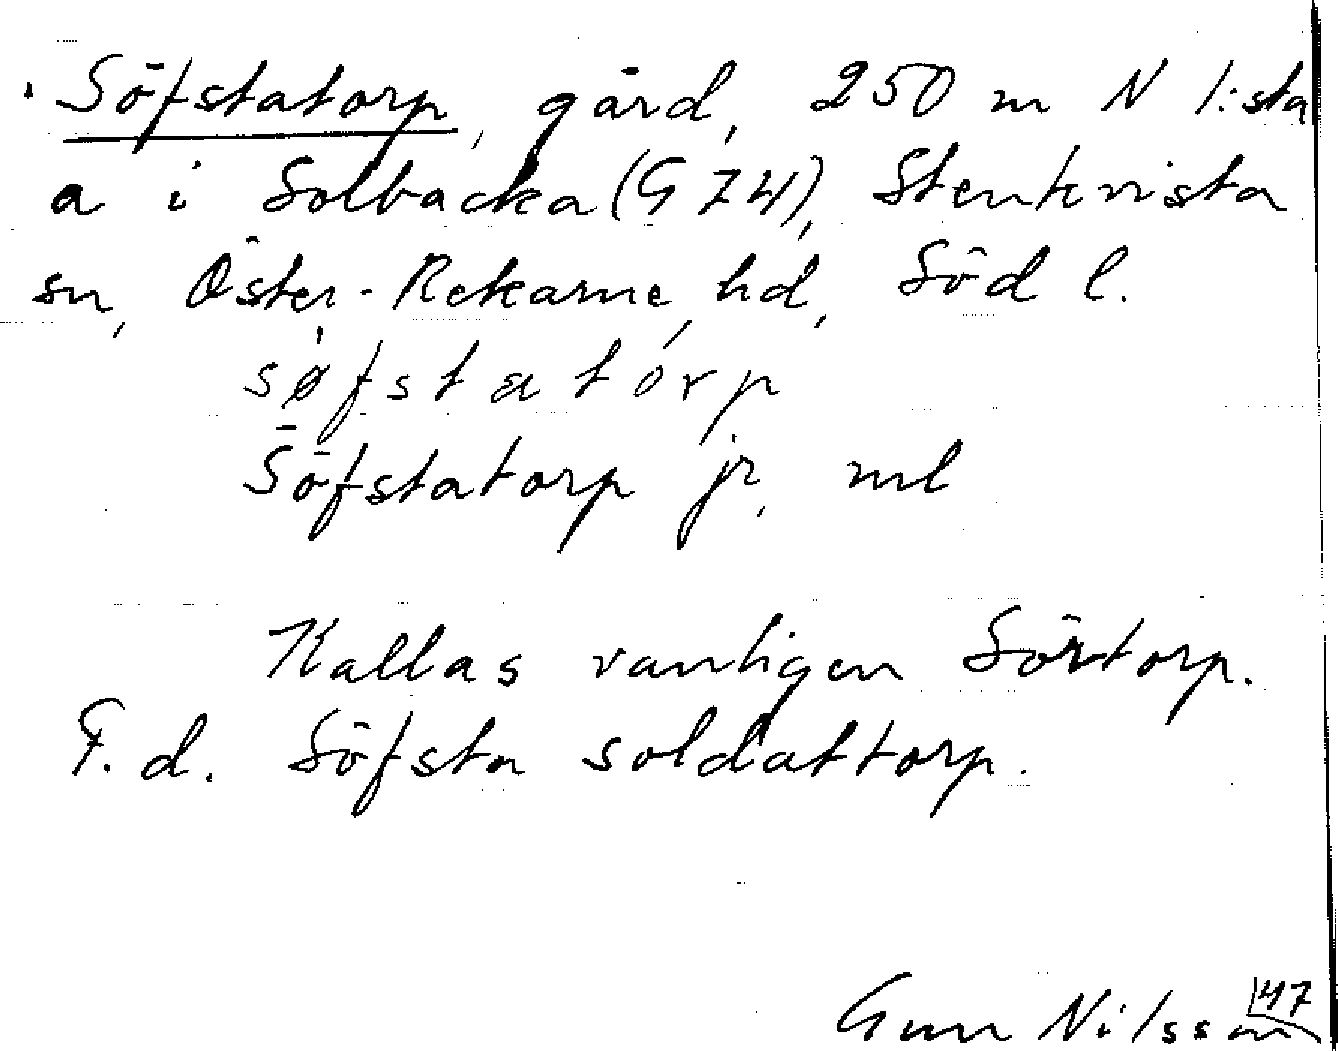 Söfstatorp, gård, 250 m N 1:sta
a i Solbacka (G 74), Stenkvista
sn, Öster-Rekarne hd, Söd l.
søfstatórp
Söfstatorp jr, ml
Kallas vanligen Sörtorp.
F.d. Söfsta soldattorp.
Gun Nilsson 47